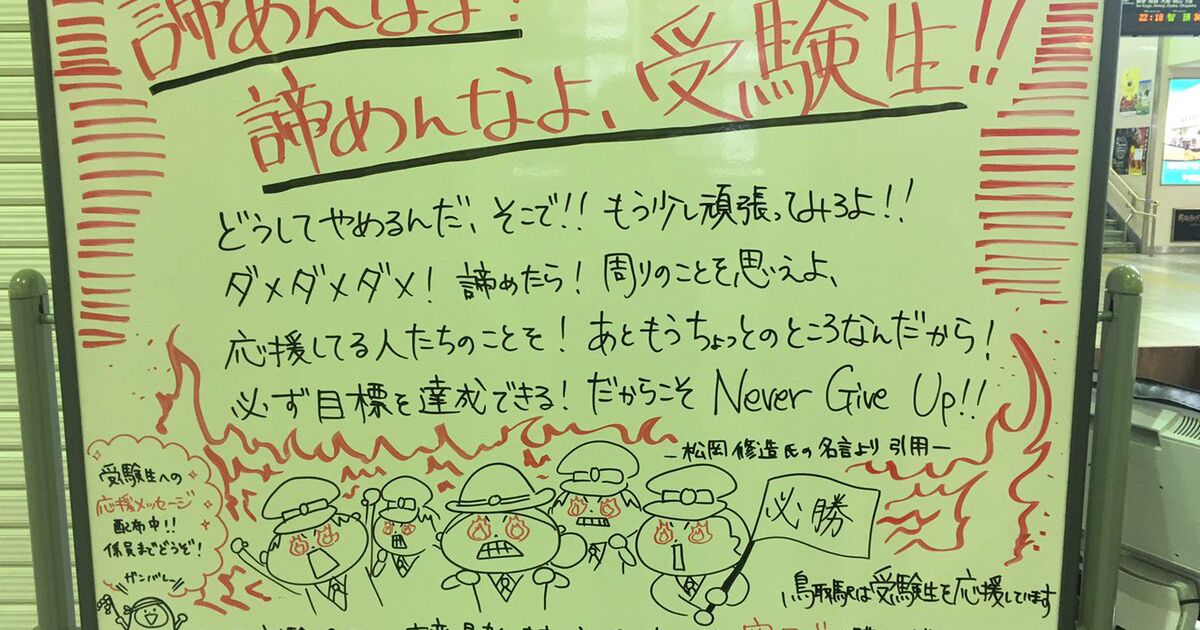 諦めんなよ!
諦めんなよ、受験生!!
どうしてやめるんだ、そこで!! もう少し頑張ってみろよ!!
ダメダメダメ! 諦めたら! 周りのことを思えよ、
応援してる人たちのことを! あともうちょっとのところなんだから!
必ず目標を達成できる! だからこそ Never Give Up!!
―松岡修造氏の名言より引用―
受験生への
応援メッセージ
配布中!!
係員までどうぞ!
ガンバレー
必勝
鳥取駅は受験生を応援しています
22:18 智頭